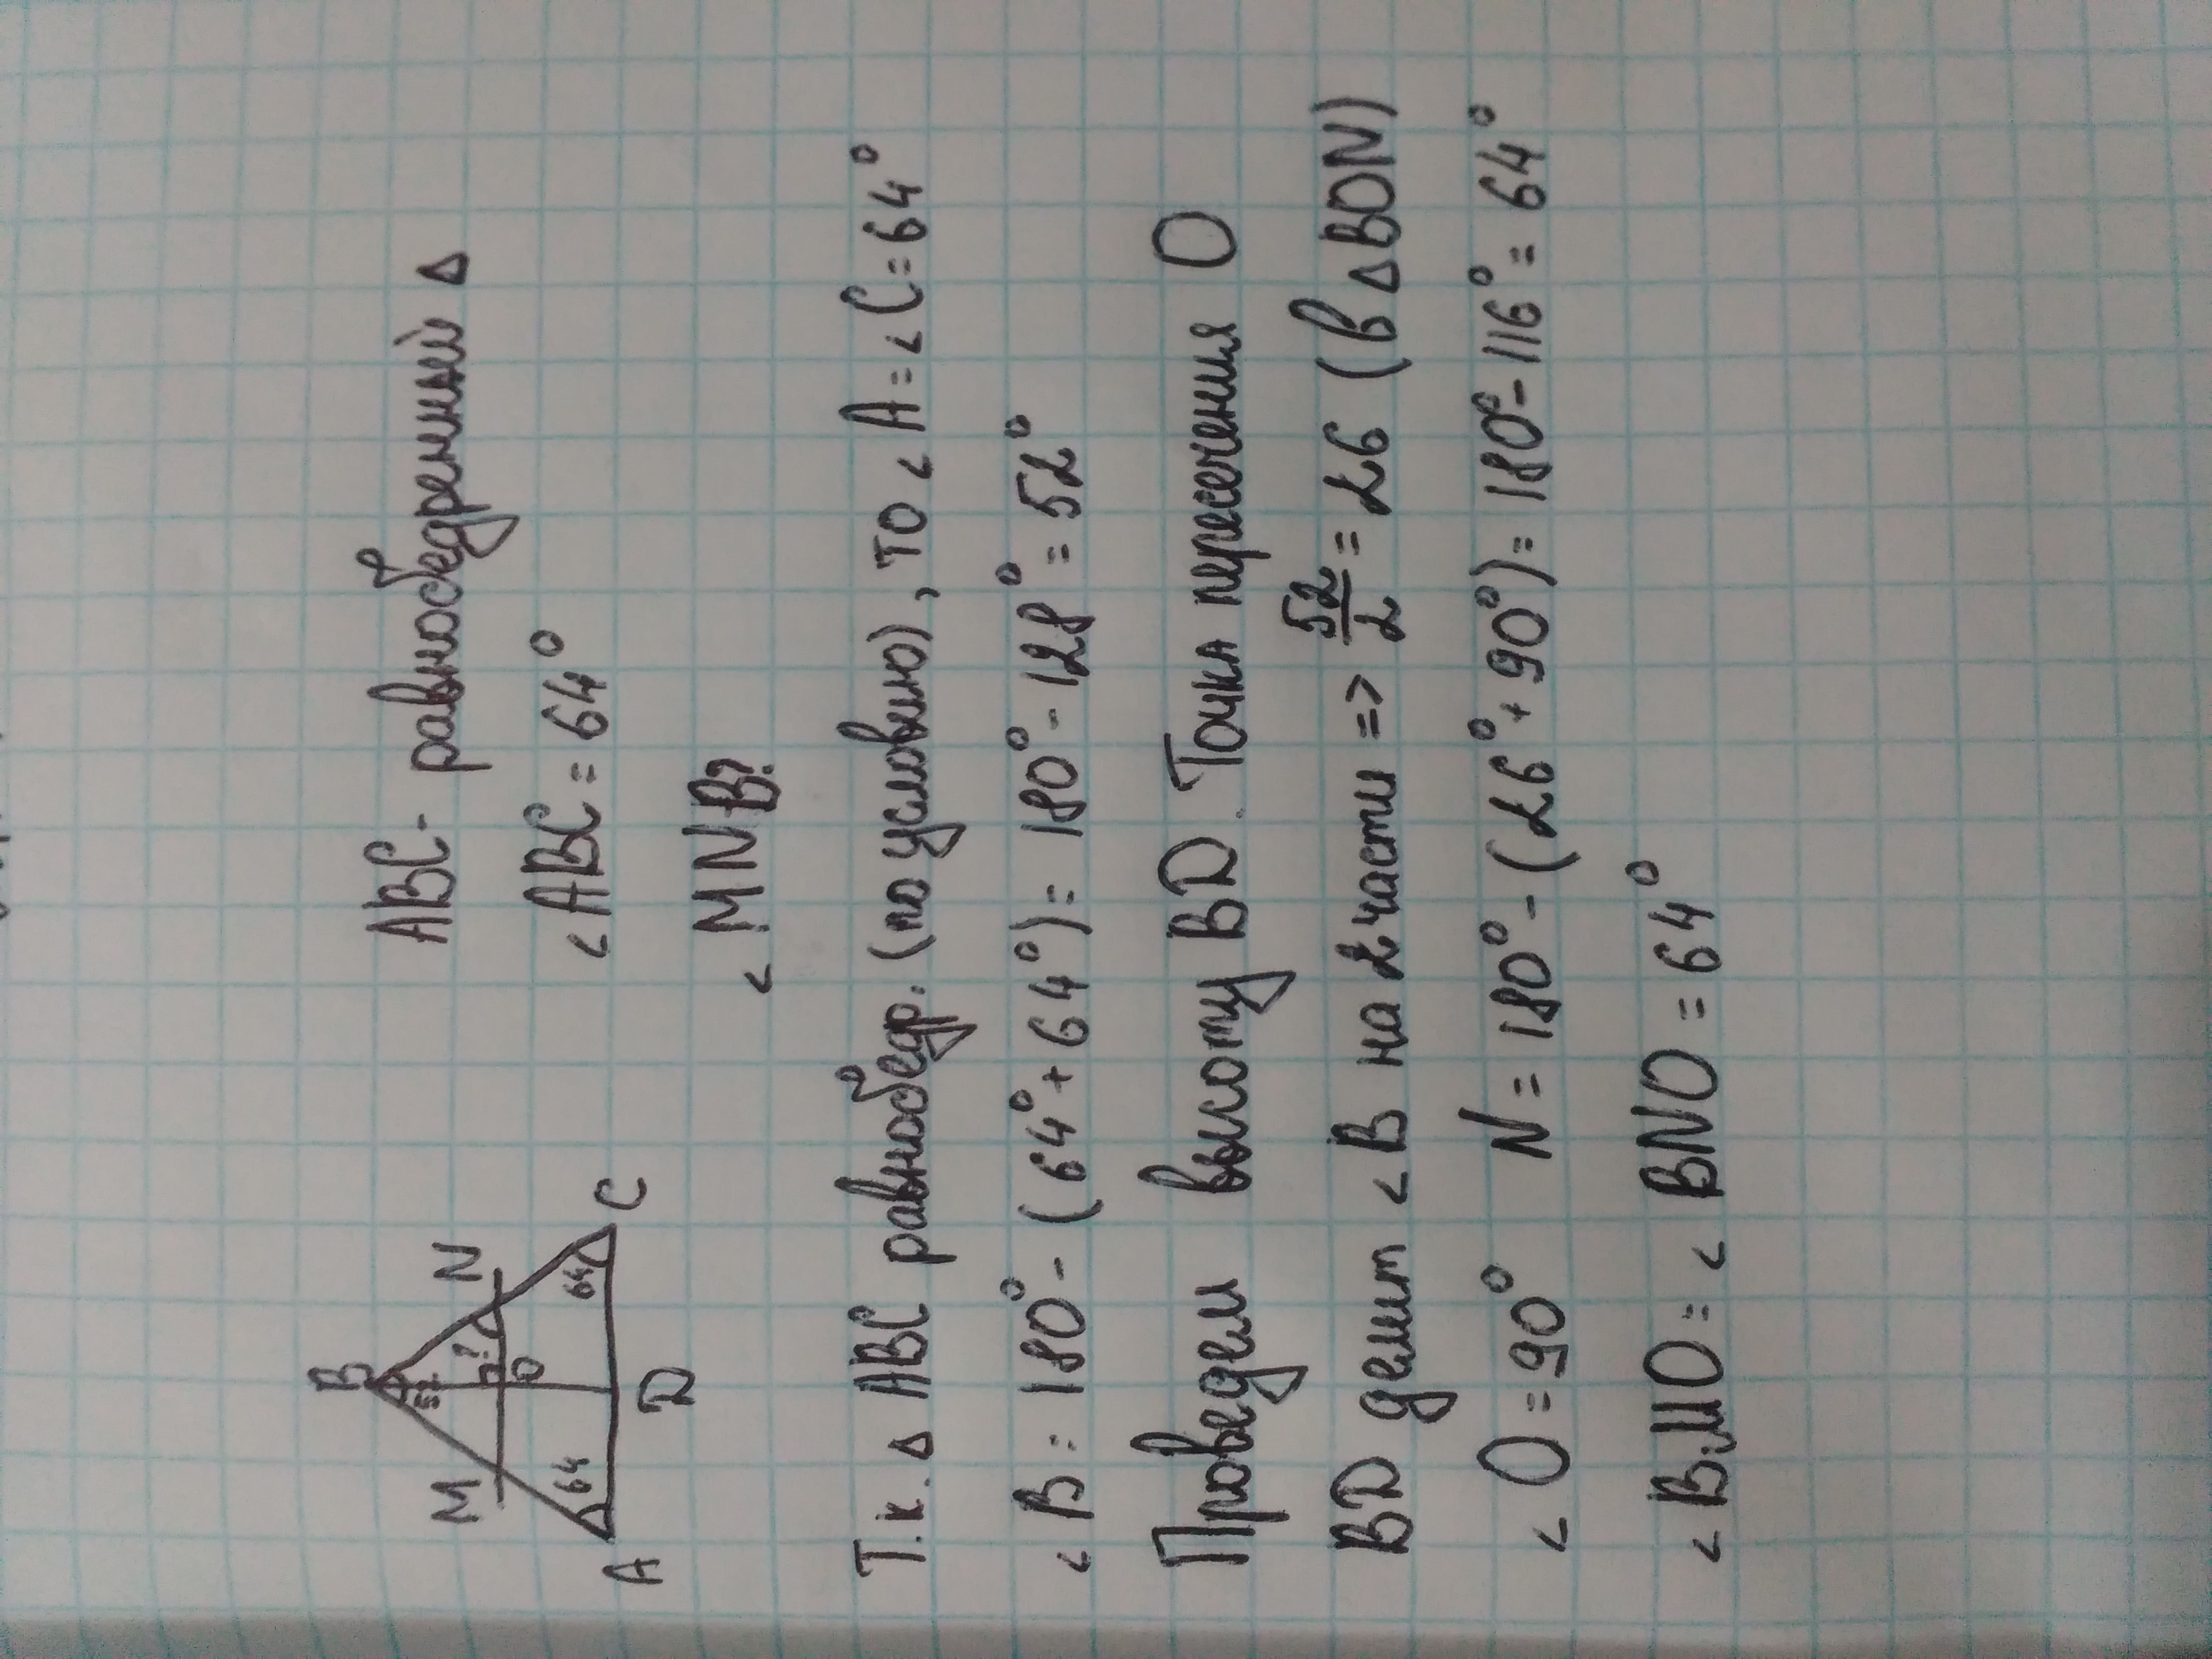 ABC - равнобедренный Δ
∠ABC = 64°
∠MNB?
B
M
N
52
?
O
64
64
A
D
C
Т.к. Δ ABC равнобедр. (по условию), то ∠A = ∠C = 64°
∠B = 180° - (64° + 64°) = 180° - 128° = 52°
Проведем высоту BD. Точка пересечения O
BD делит ∠B на 2 части => 52/2 = 26 (в Δ BON)
∠O = 90° N = 180° - (26° + 90°) = 180° - 116° = 64°
∠BMO = ∠BNO = 64°